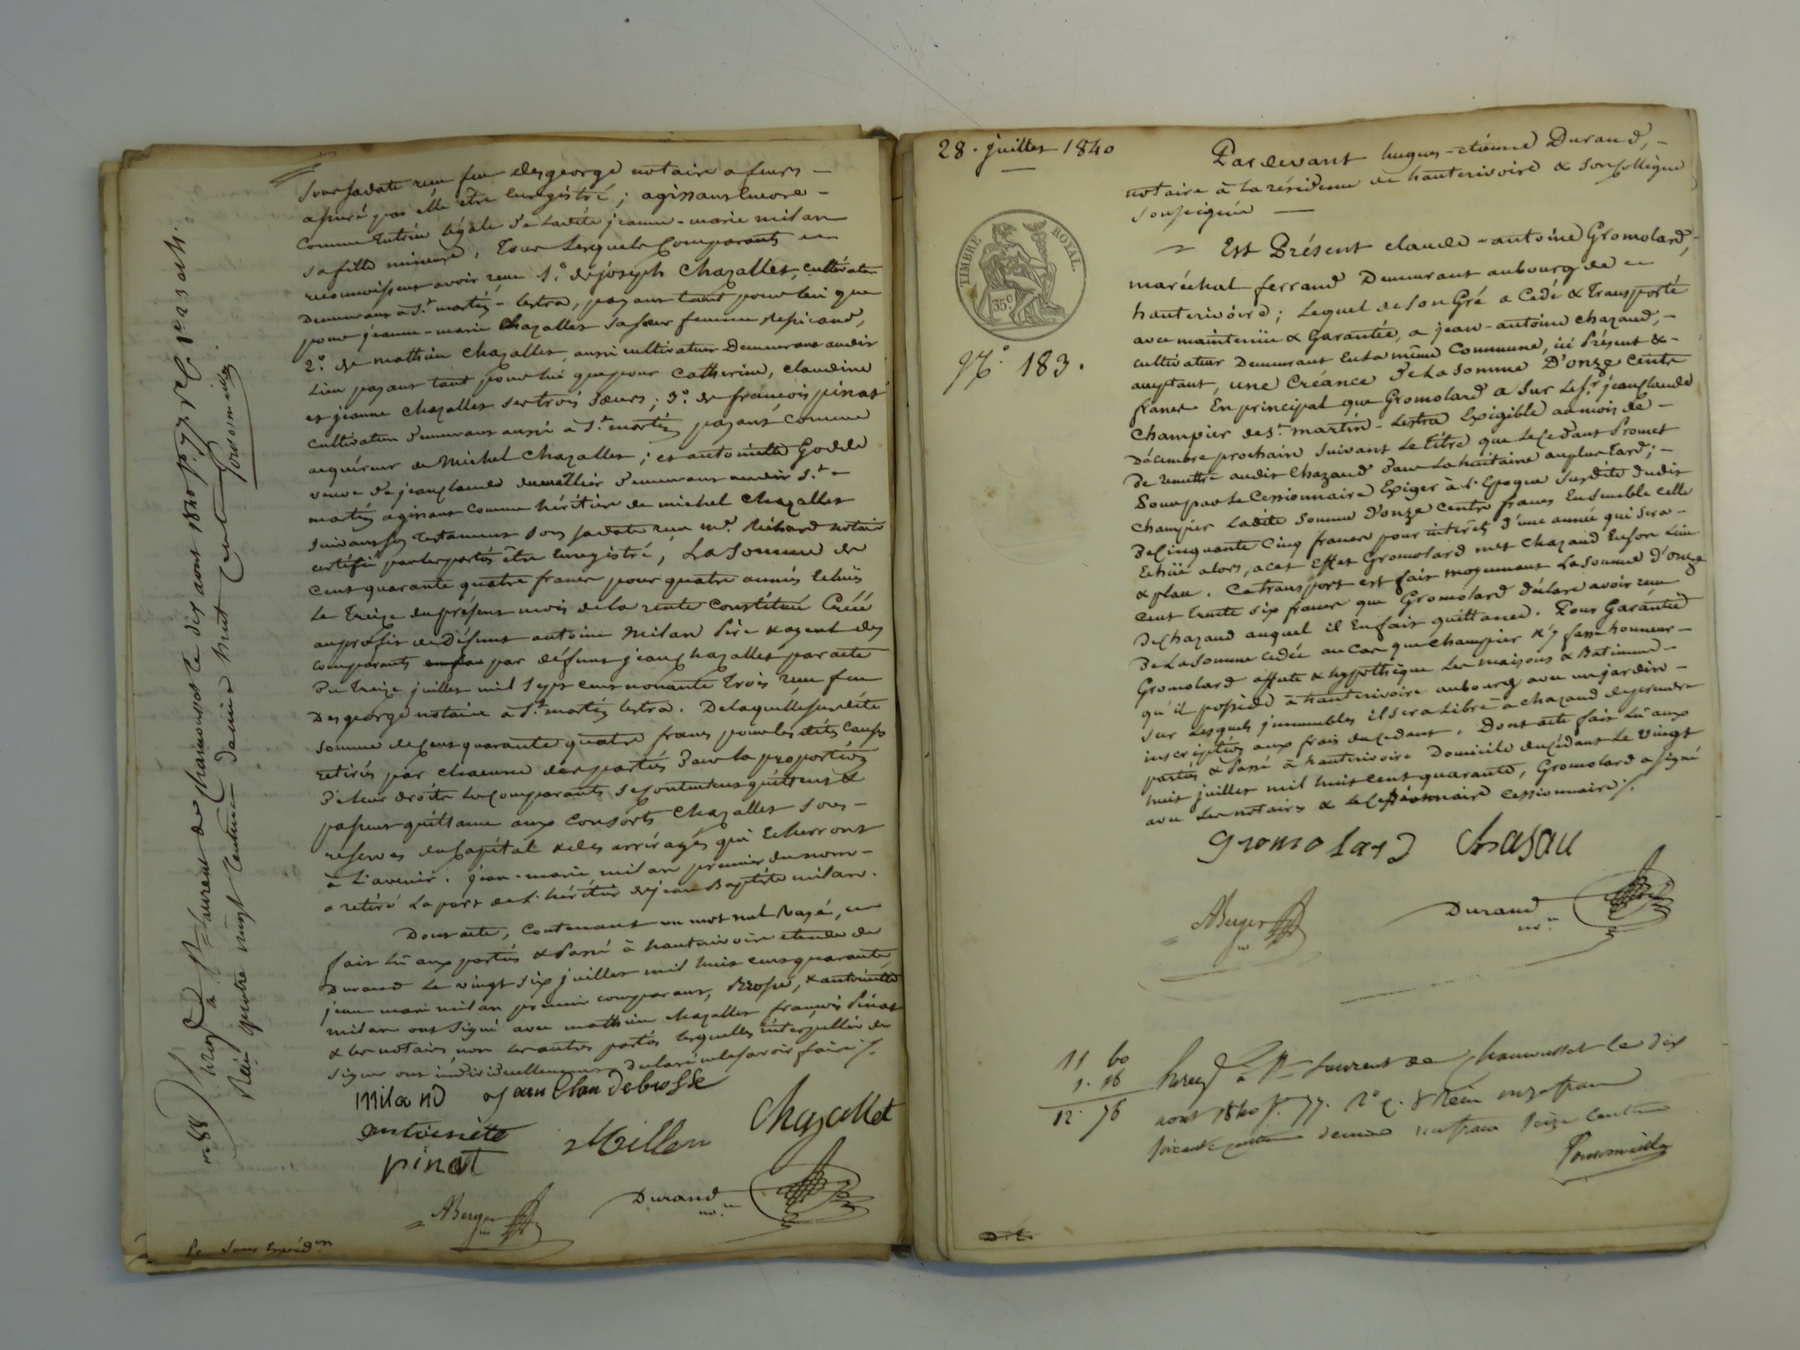 sous sa date reçu feu Desgeorge notaire a feurs -
assuré par elle être enregistré ; agissant encore -
comme tutrice légale de ladite jeanne-marie milan
sa fille mineure, Tous lesquels comparants
reconnoissent avoir reçu 1.º de joseph Chazallet, cultivateur
Demeurant à St. martin-lestra, payant tant pour lui que
pour jeanne-marie Chazallet sa sœur femme
2.º de mathieu Chazallet, aussi cultivateur Demeurant audit
Lieu payant tant pour lui que pour Catherine, Claudine
et jeanne Chazallet ses trois sœurs ; 3.º de françois pinat
cultivateur Demeurant aussi à St. martin, payant comme
acquéreur de Michel Chazallet ; et antoinette Godde
veuve de jean claude Demeurant audit St.
martin agissant comme héritière de michel Chazallet
suivant son testament sous sa date reçu me. Richard notaire
certifié par les parties être enregistré, La somme de
cent quarante quatre francs pour quatre années Echues
Le Treize du présent mois de la rente constituée Créée
au profit de Défunt antoine Milan Père & agent des
comparants par défunt jean Chazallet par acte
Du Treize juillet mil sept cent nonante Trois reçu feu
Desgeorge notaire à St. martin lestra. De laquelle susdite
somme de Cent quarante quatre francs pour lesdits Causes
retirés par chacune des parties Dans la proportion
De leur droits les comparants se contentent quittent &
passent quittance aux Consorts Chazallet sous-
réserves du Capital & des arrérages qui Echerront
à L'avenir. jean-marie milan premier du nom -
a retiré La part de L'héritier de jean Baptiste milan.
Dont acte, contenant un mot nul Rayé,
fait Lu aux parties & Passé à hauterivoire etude de
Durand Le vingt six juillet mil huit cent quarante
jean marie milan premier comparant, Brosse, & antoinette
milan ont signé avec mathieu Chazallet françois Pinat
& les notaires, non les autres parties lesquelles interpellées de
signer ont individuellement déclaré ne le savoir faire ./.
miland jean Clau debrosse
antoinete Millan Chazallet
pinat
ABerger
Durand
no.re
28. juillet 1840
Par devant hugues-etienne Durand, -
notaire à la résidence de hauterivoire & son Collègue
soussignés —
TIMBRE ROYAL.
35 c
Nº. 183.
Est Présent claude-antoine Gromolard,
maréchal ferrand Demeurant au bourg de
hauterivoire ; Lequel de son Gré a Cédé & Transporté
avec maintenue & Garantie, a jean-antoine chazaud, -
cultivateur Demeurant En la même Commune, ici Présent & -
acceptant, une Créance De La somme D'onze cents
francs En principal que Gromolard a sur Le Sr. jean claude
Champier de St. martin-Lestra Exigible au mois de -
Décembre prochain suivant Le titre que Le Cédant Promet
de remettre audit Chazaud Dans La huitaine au plus Tard ; -
Pour par Le Cessionnaire Exiger à l'Epoque susdite dudit
Champier Ladite somme d'onze cents francs Ensemble celle
De Cinquante Cinq francs pour intérêts d'une année qui sera -
Echüe alors, a cet Effet Gromolard met Chazaud En son Lieu
& place. Ce transport est fait moyennant La somme d'onze
cent trente six francs que Gromolard déclare avoir reçu
de Chazaud auquel il En fait quittance. Pour Garantie
De La somme cédée au Cas que Champier N'y fasse honneur -
Gromolard affecte & hypothèque Les maisons & Batiments -
qu'il possède à hauterivoire au bourg avec un jardin -
sur Lesquels immeubles il sera Libre à Chazaud de prendre
inscription aux frais du Cédant. Dont acte fait Lu aux
parties & Passé à hauterivoire Domicile du Cédant Le vingt
huit juillet mil huit cent quarante, Gromolard a signé
avec Les notaires & Le cessionnaire ./.
gromolard Chasau
ABerger
Durand
no.re
11 60
1. 16
12. 76
Enreg à St Laurent de Chamousset le dix
aout 1840 f. 77. Rº C. 8 Reçu onze francs
soixante centimes decime un franc seize centimes